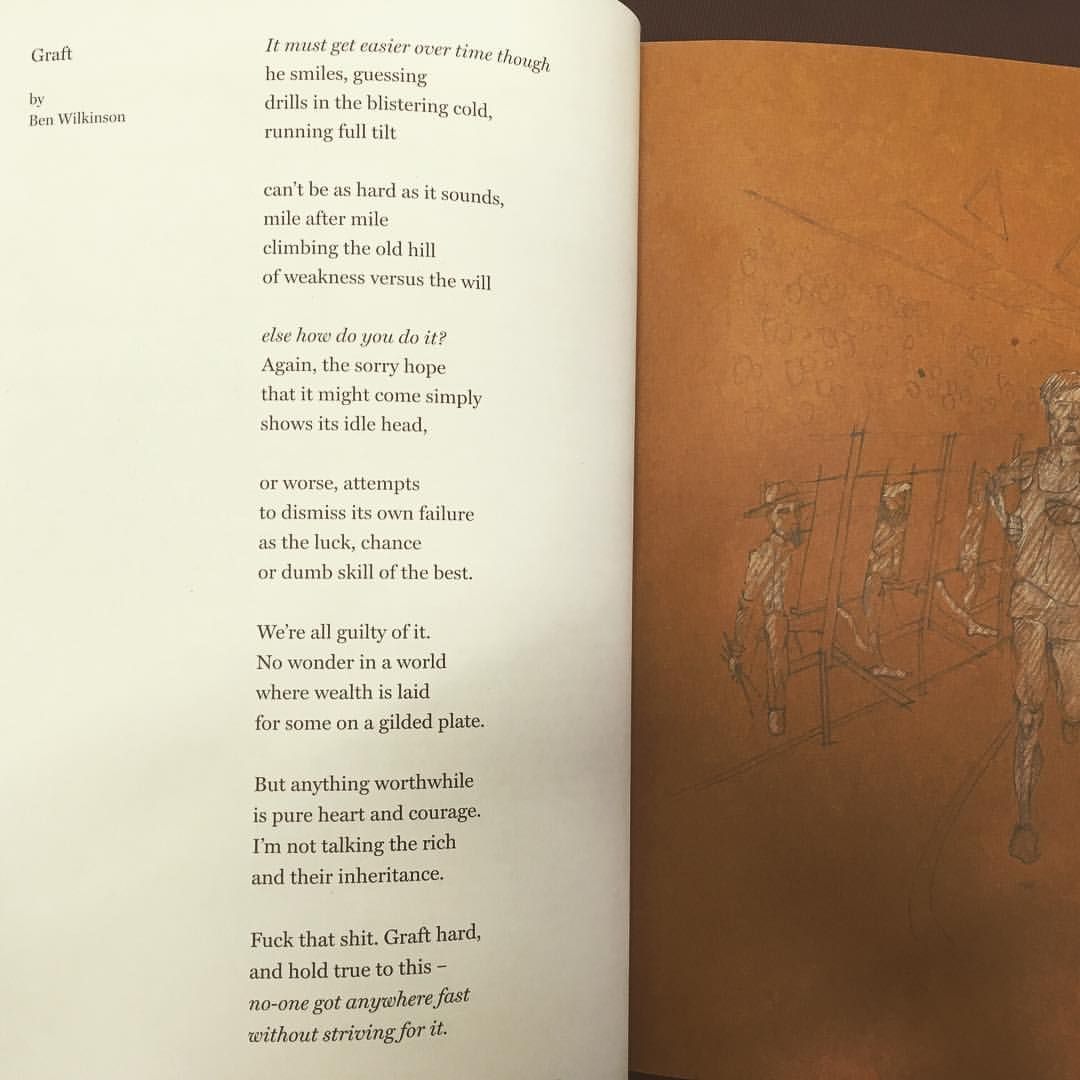 Graft
by
Ben Wilkinson
It must get easier over time though
he smiles, guessing
drills in the blistering cold,
running full tilt
can't be as hard as it sounds,
mile after mile
climbing the old hill
of weakness versus the will
else how do you do it?
Again, the sorry hope
that it might come simply
shows its idle head,
or worse, attempts
to dismiss its own failure
as the luck, chance
or dumb skill of the best.
We're all guilty of it.
No wonder in a world
where wealth is laid
for some on a gilded plate.
But anything worthwhile
is pure heart and courage.
I'm not talking the rich
and their inheritance.
Fuck that shit. Graft hard,
and hold true to this –
no-one got anywhere fast
without striving for it.